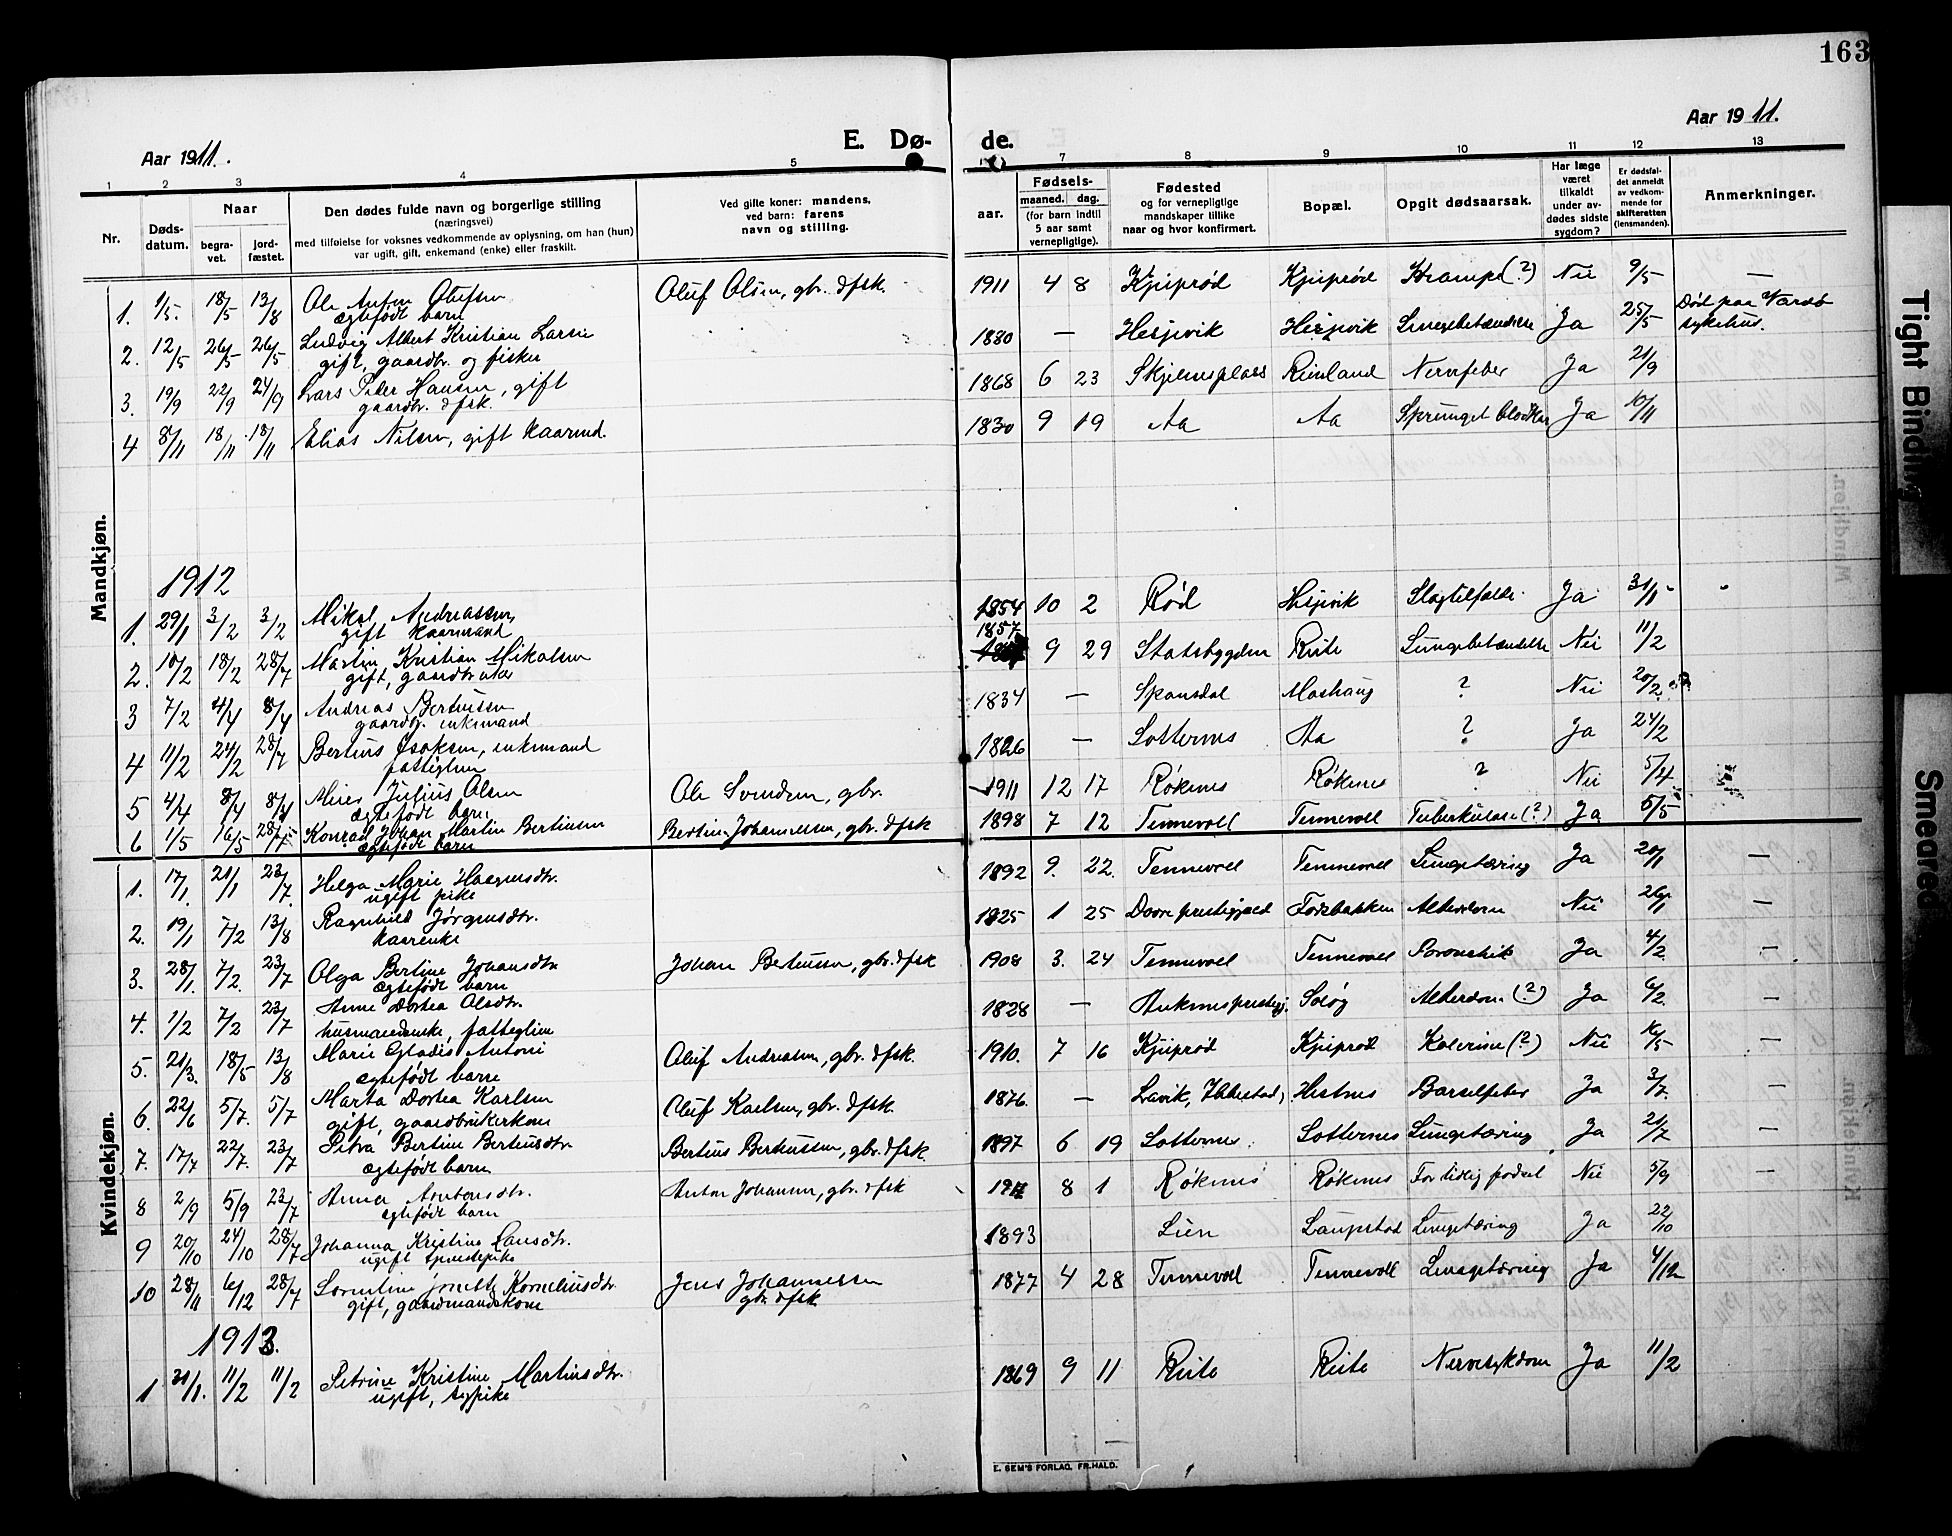 163
Aar 1911.
E. Dø-
de.
Aar 1911.
1 2 3 4 5
7 8 9 10 11 12 13
Nr.
Døds-
datum.
Naar
begra-
vet.
jord-
fæstet.
Den dødes fulde navn og borgerlige stilling
(næringsvei)
med tilføielse for voksnes vedkommende av oplysning, om han (hun)
var ugift, gift, enkemand (enke) eller fraskilt.
Ved gifte koner: mandens,
ved barn: farens
navn og stilling.
aar.
Fødsels-
maaned. dag.
(for barn indtil
5 aar samt
vernepligtige).
Fødested
og for vernepligtige
mandskaper tillike
naar og hvor konfirmert.
Bopæl.
Opgit dødsaarsak.
Har læge
været
tilkaldt
under av-
dødes sidste
sygdom?
Er dødsfal-
det anmeldt
av vedkom-
mende for
skifteretten
(lensmanden).
Anmerkninger.
Mandkjøn.
1. 1/5. 18/5 13/8 Ole Anton Olufsen
ægtefødt barn
Oluf Olsen, gbr. & fsk. 1911 4 8 Kjeiprød Kjeiprød Krampe (?) Nei 9/5 —
2. 12/5 26/5 26/5 Ludvig Albert Kristian Larsen
gift, gaardbr. og fisker
1880 — Hesjevik Hesjevik Lungebetændelse Ja 25/5 Død paa Vardø
sykehus.
3. 19/9 22/9 24/9 Lars Peder Hansen, gift
gaardbr. & fsk.
1868 6 23 Skjelnesplads Reinland Nervefeber Ja 21/9
4 8/11 18/11 18/11 Elias Nilsen, gift kaarmd.
1830 9 19 Aa Aa Sprunget blodkar Ja 10/11
1912
1. 29/1 3/2 3/2 Mikal Andreassen,
gift kaarmand
1854 10 2 Rød Hesjevik Slagtilfælde. Ja 31/1
2. 10/2 18/2 28/7 Martin Kristian Mikalsen
gift, gaardbruker
1857 9 29 Statsbygden Reite Lungebetændelse Nei 11/2
3 7/2 4/4 8/4 Andreas Bertiussen
gaardbr. enkemand
1834 — Spansdal Moshaug ? Nei 20/2.
4 11/2 24/2 28/7 Bertius Isaksen, enkemand
fattiglem
1826 — Sotternes Aa ? Ja 24/2
5 4/4 8/4 8/4 Meier Julius Olsen
ægtefødt barn
Ole Svendsen, gbr. 1911 12 17 Røkenes Røkenes ? Nei 5/4
6 1/5 16/5 28/7 Konrad Johan Martin Bertinsen
ægtefødt barn
Bertin Johannessen, gbr. & fsk 1898 7 12 Tennevoll Tennevoll Tuberkulose (?) Ja 5/5
Kvindekjøn.
1. 17/1. 21/1 23/7. Helga Marie Haagensdtr.
ugift pike
1892 9. 22. Tennevoll Tennevoll Lungetæring Ja 20/1 —
2. 19/1 7/2 13/8 Ragnhild Jørgensdtr.
kaarenke
1825 1 25 Dovre prestegjæld Fossbakken Alderdom Nei 26/1 —
3. 28/1. 7/2. 23/7 Olga Bertine Johansdtr.
ægtefødt barn
Johan Bertiussen, gbr. & fsk 1908 3. 24 Tennevoll Tennevoll Ja 4/2. —
4. 1/2 7/2 23/7 Anne Dortea Olsdtr.
husmandsenke, fattiglem
1828 — Soløy Alderdom (?) Ja 6/2. —
5. 21/3. 18/5 13/8 Marie Gladis Antoni
ægtefødt barn
Oluf Andreasen, gbr. & fsk. 1910. 7 16 Kjeiprød Kjeiprød Kolerine (?) Nei 16/5 —
6. 22/6 5/7. 5/7 Marta Dortea Karlsen
gift, gaardbrukerkone
Oluf Karlsen, gbr. & fsk. 1876. — Lavik, Ibbestad, Hestnes Barselfeber Ja 3/7. —
7. 17/7 22/7. 23/7 Petra Bertine Bertiusdtr.
ægtefødt barn
Bertius Bertiussen, gbr. & fsk. 1897 6 19 Sotternes. Sotternes Lungetæring Ja 21/7 —
8 2/9 5/9 23/7 Anna Antonsdtr.
ægtefødt barn
Anton Johansen, gbr. & fsk 1912 8 1 Røkenes Røkenes For tidlig fødsel Nei 5/9 —
9 20/10 24/10 28/7 Johanna Kristine Larsdtr.
ugift tjenestepike
1893 Lien Laupstad Lungetæring Ja 22/10
10 28/11 6/12 28/7 Sorentine Jonette Korneliusdtr.
gift, gaardmandskone
Jens Johannessen
gbr. & fsk
1877 4 28 Tennevoll Tennevoll Lungetæring Ja 4/12
1913.
1 31/1. 11/2 11/2 Petrine Kristine Martinsdtr.
ugift, sypike
1869 9 11 Reite Reite Nervesykdom Ja 11/2
E. SEM'S FORLAG, FR.HALD.
Tight Binding
Smeared